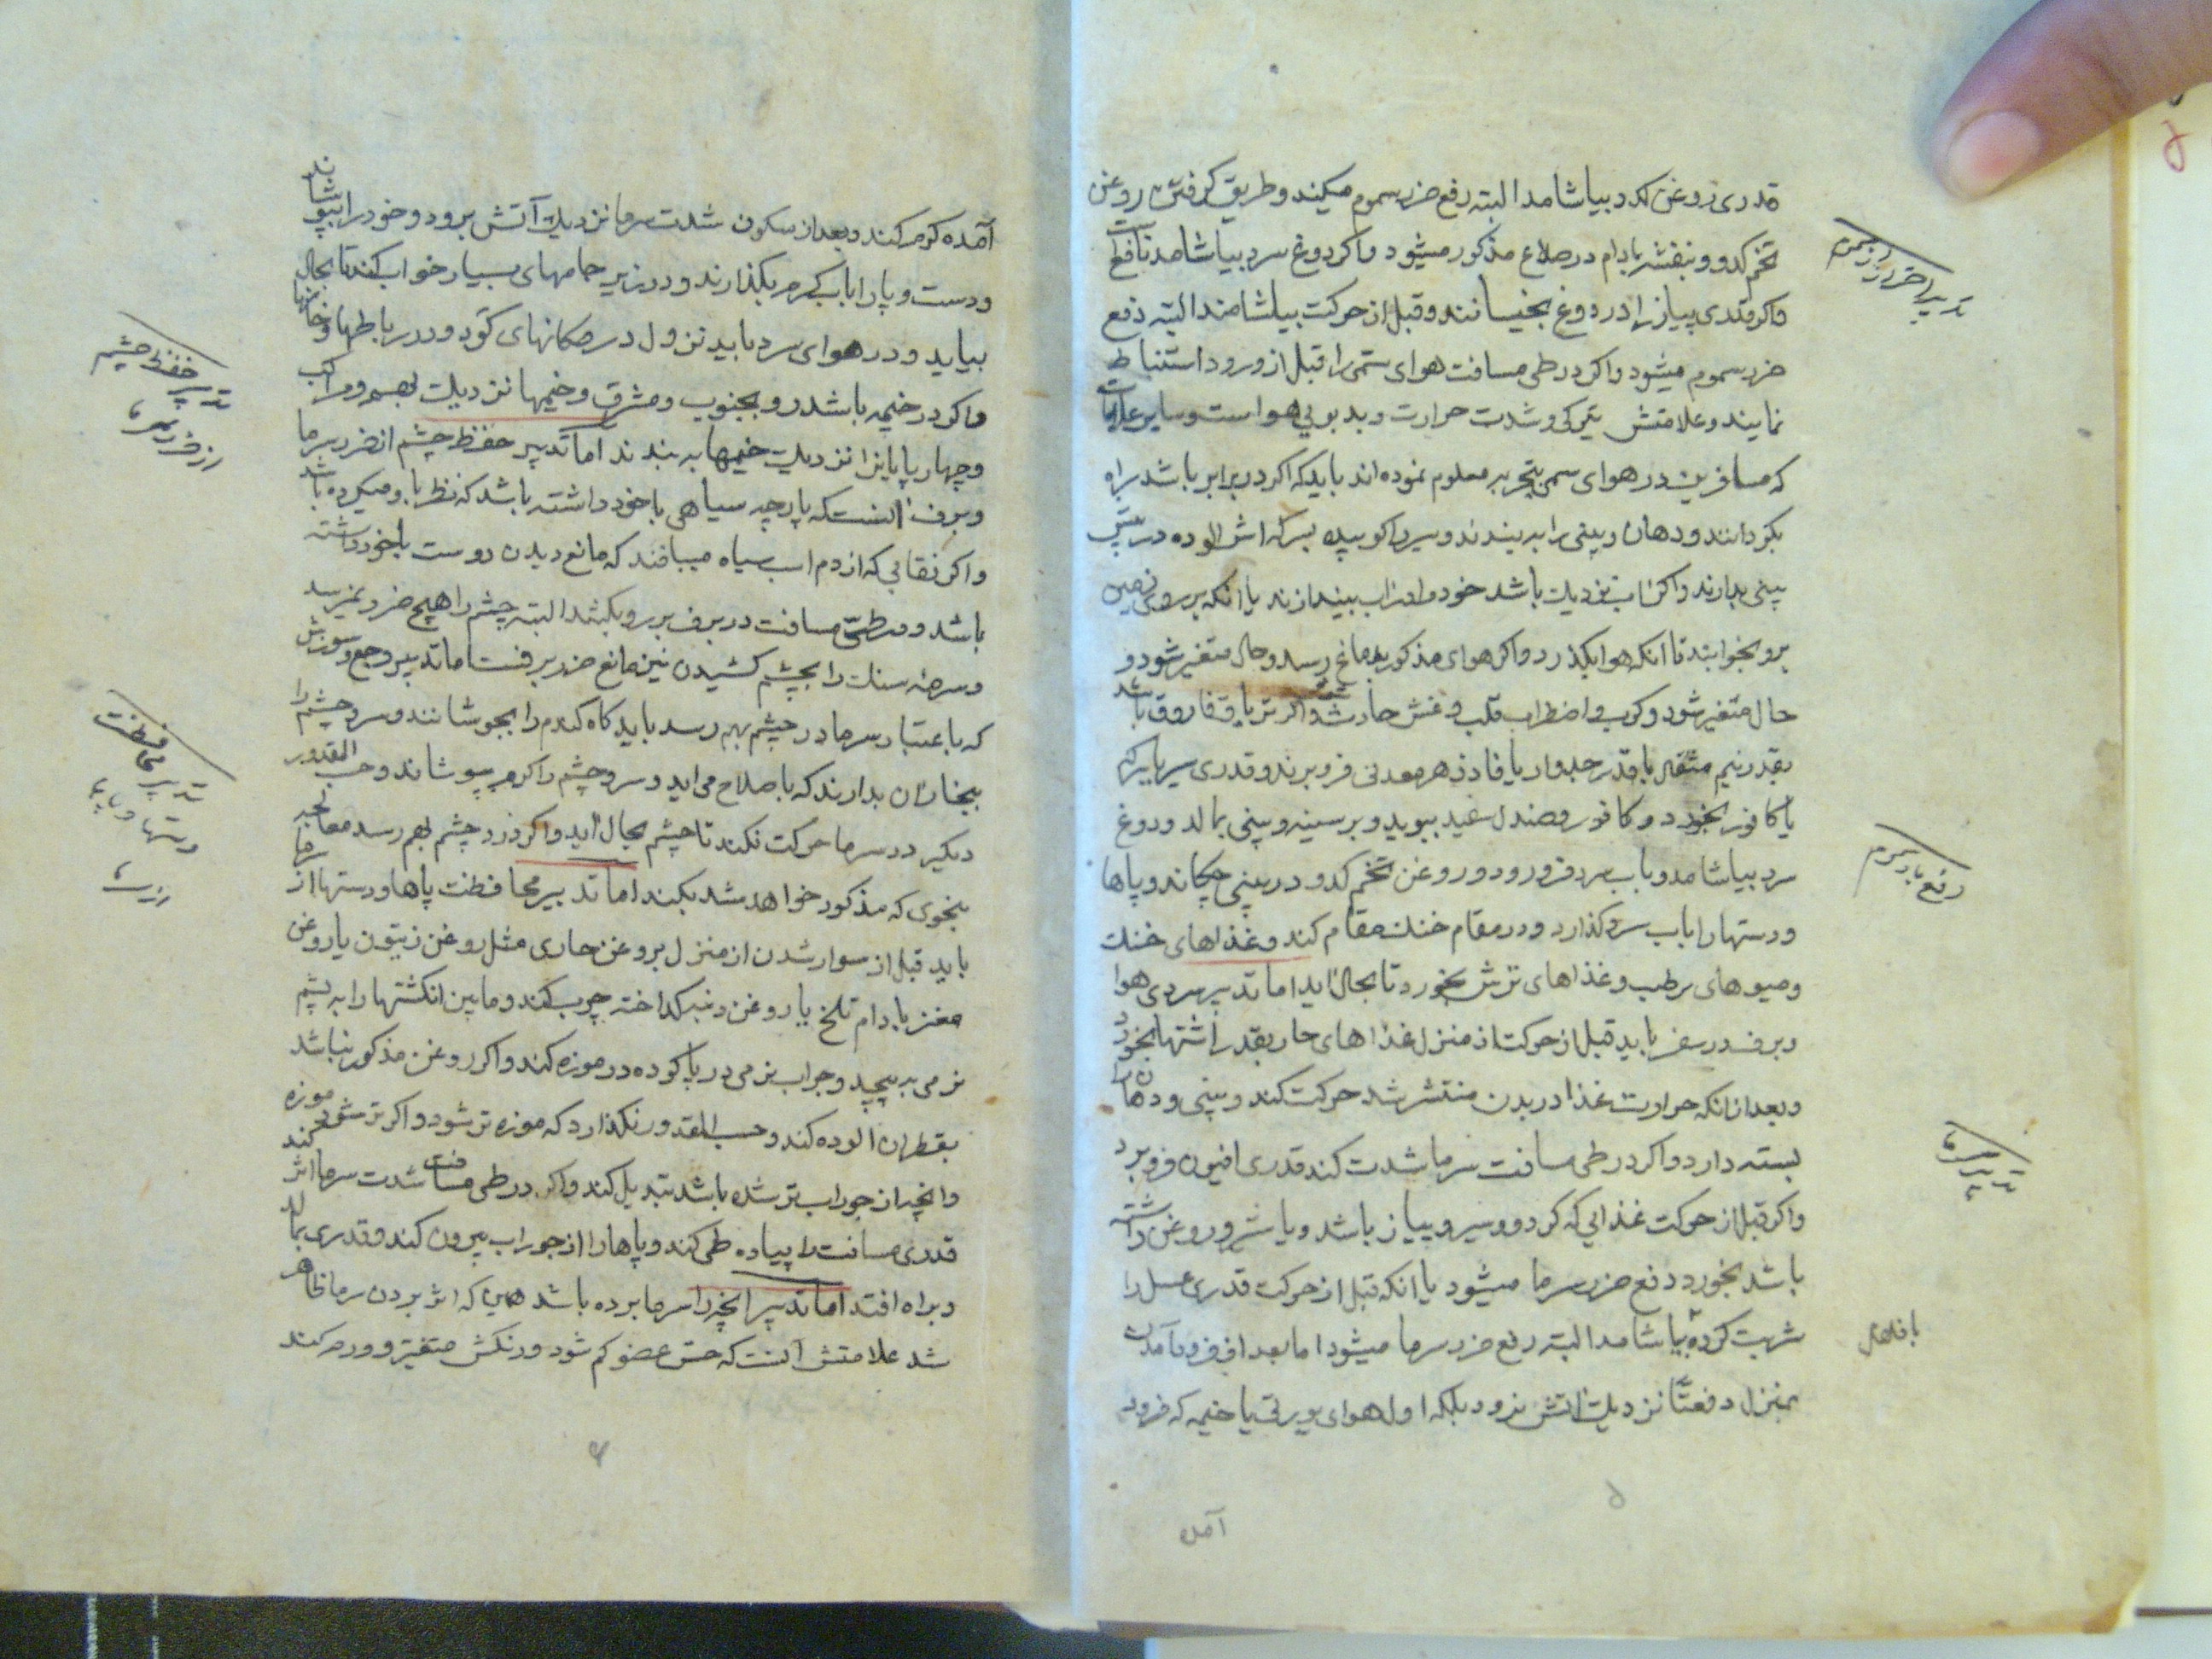 قدری روغن کدو بیاشامد البته رفع ضرر سموم میکند و طریق گرفتن روغن
تخم کدو و بنفشه بادام در صداع مذکور میشود و اگر دوغ سرد بیاشامد نافع است
و اگر قدری پیاز را در دوغ بخیسانند و قبل از حرکت بیاشامند البته دفع
ضرر سموم میشود و اگر در طی مسافت هوای سمی را قبل از ورود استنباط
نمایند و علامتش تیرگی و شدت حرارت و بدبویی هواست و سایر علامات
که مسافرین در هوای سمی بتجربه معلوم نموده اند باید که اگر در برابر باشد براه
بگردانند و دهان و بینی را به بندند و سیر را کوبیده بسرکه اش الوده در پیش
بینی بدارند و اگر اب نزدیک باشد خود را در اب بیندازند یا انکه بر روی زمین
برو بخوابند تا انکه هوا بگذرد و اگر هوای مذکور بدماغ رسد و حال متغیر شود و
حال متغیر شود و کرب و اضطراب قلب و غش حادث شود اگر تریاق فاروق باشد
بقدر نیم مثقال یا قدر جدوار یا فادزهر معدنی فرو برند و قدری سیر یا سرکه
یا کافور بخورد و کافور و صندل سفید ببوید و بر سینه و بینی بمالد و دوغ
سرد بیاشامد و باب سرد فرو رود و روغن تخم کدو در بینی چکاند و پاها
و دستها را باب سرد گذارد و در مقام خنک مقام کند و غذاهای خنک
و میوهای رطب و غذاهای ترش بخورد تا بحال اید اما تدبیر سردی هوا
و برف در سفر باید قبل از حرکت از منزل غذاهای حار بقدر اشتها بخورد
و بعد از انکه حرارت غذا در بدن منتشر شد حرکت کند و بینی و دهان را
بسته دارد و اگر در طی مسافت سرما شدت کند قدری افیون فرو برد
و اگر قبل از حرکت غذایی که گردو و سیر و پیاز باشد و یا شیر و روغن داشته
باشد بخورد دفع ضرر سرما میشود یا انکه قبل از حرکت قدری عسل را
شربت کرده بیاشامد البته رفع ضرر سرما میشود اما بعد از فرو آمدن
بمنزل دفعتاً نزدیک اتش نرود بلکه اول هوای یورتی یا خیمه که فرود
آمده
رفع سموم
تدبیر سرما
با فلفل
آمده گرم کند و بعد از سکون شدت سرما نزدیک آتش برود و خود را بپوشاند
و دست و پا را باب گرم بگذارند و در زیر جامهای بسیار خواب کند تا بحال
بیاید و در هوای سرد باید نزول در مکانهای گود و در رباطها و خانها
و اگر در خیمه باشد رو بجنوب و مشرق و خیمها نزدیک بهم و مراکب
و چهارپایانرا نزدیک خیمها به بندند اما تدبیر حفظ چشم از ضرر سرما
و برف انست که پارچه سیاهی با خود داشته باشد که نظر باو میکرده باشد
و اگر نقابی که از دم اسب سیاه میبافند که مانع دیدن دوست با خود داشته
باشد و در طی مسافت در برف بر رو بکشد البته چشم را هیچ ضرر نمیرسد
و سرمه سنگ را بچشم کشیدن نیز مانع ضرر برفست اما تدبیر وجع و سوزش
که باعتبار سرما در چشم بهم رسد باید کاه گندم را بجوشانند و سر و چشم را
ببخار ان بدارند که باصلاح می اید و سر و چشم را گرم بپوشاند و حسب المقدور
دیگر در سرما حرکت نکند تا چشم بحال اید و اگر درد چشم بهم رسد معالجه
بنحوی که مذکور خواهد شد بکند اما تدبیر محافظت پاها و دستها از سرما
باید قبل از سوار شدن از منزل بروغن حاری مثل روغن زیتون یا روغن
مغز بادام تلخ یا روغن دنبه گداخته چرب کند و مابین انگشتها را به پشم
نرمی به پیچد و جوراب نرمی در پا کرده در موزه کند و اگر روغن مذکور نباشد
بقطران الوده کند و حسب المقدور نگذارد که موزه تر شود و اگر تر شود موزه
و انچه از جوراب تر شده باشد تبدیل کند و اگر در طی مسافت شدت سرما اثر کند
قدری مسافت را پیاده طی کند و پاها را از جوراب بیرون کند و قدری بمالد
و براه افتد اما تدبیر انچه را سرما برده باشد همین که اثر بردن سرما ظاهر
شد علامتش آنست که حس عضو کم شود و رنگش متغیر و ورم کند
تدبیر حفظ چشم
از ضرر سرما
تدبیر محافظت
دستها و پاها
از سرما